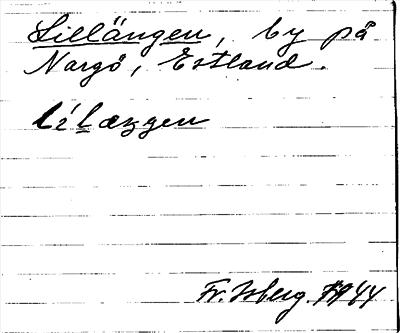 Lillängen, by på
Nargö, Estland.
lílæŋgen
Fr. Isberg 1944